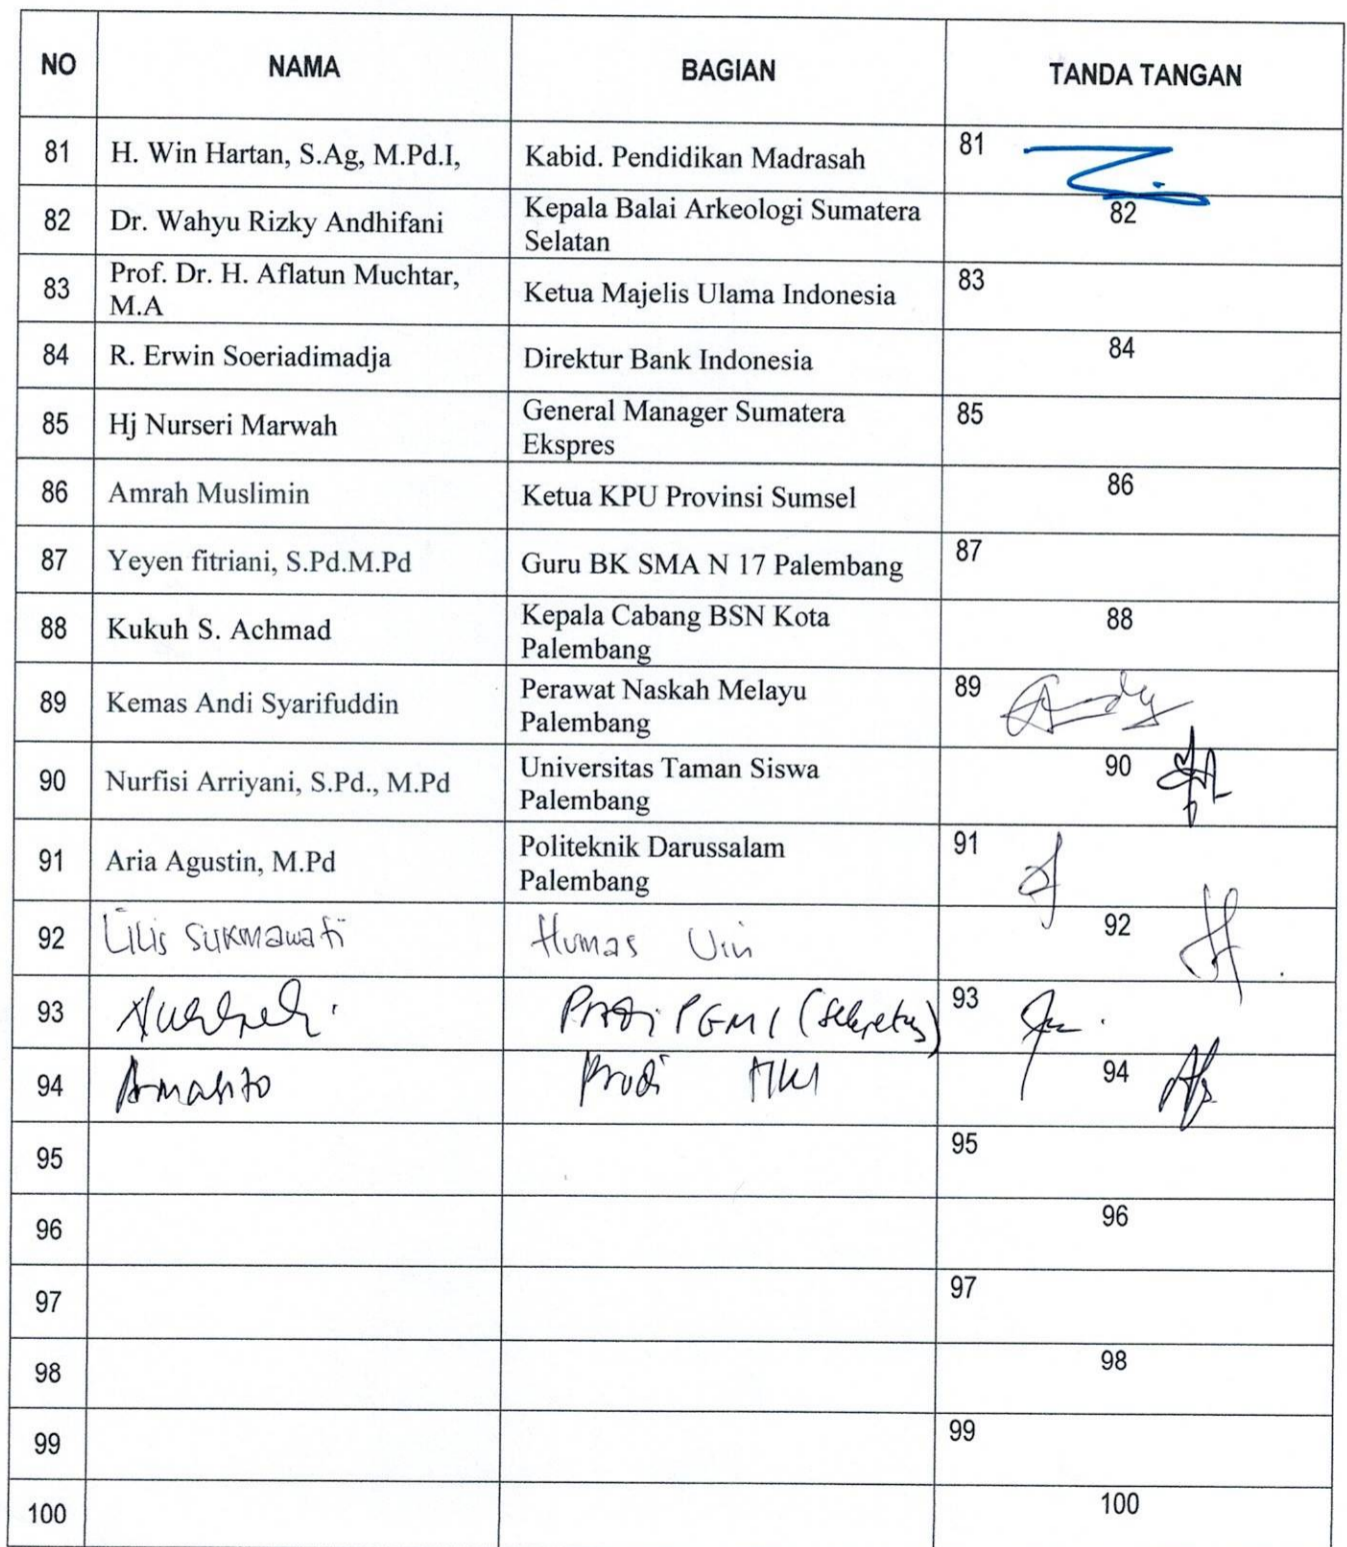 NO NAMA BAGIAN TANDA TANGAN
81 H. Win Hartan, S.Ag, M.Pd.I, Kabid. Pendidikan Madrasah 81
82 Dr. Wahyu Rizky Andhifani Kepala Balai Arkeologi Sumatera
Selatan 82
83 Prof. Dr. H. Aflatun Muchtar,
M.A Ketua Majelis Ulama Indonesia 83
84 R. Erwin Soeriadimadja Direktur Bank Indonesia 84
85 Hj Nurseri Marwah General Manager Sumatera
Ekspres 85
86 Amrah Muslimin Ketua KPU Provinsi Sumsel 86
87 Yeyen fitriani, S.Pd.M.Pd Guru BK SMA N 17 Palembang 87
88 Kukuh S. Achmad Kepala Cabang BSN Kota
Palembang 88
89 Kemas Andi Syarifuddin Perawat Naskah Melayu
Palembang 89
90 Nurfisi Arriyani, S.Pd., M.Pd Universitas Taman Siswa
Palembang 90
91 Aria Agustin, M.Pd Politeknik Darussalam
Palembang 91
92 Lilis Sukmawati Humas Uin 92
93 Prodi PGMI 93
94 Prodi 94
95 95
96 96
97 97
98 98
99 99
100 100